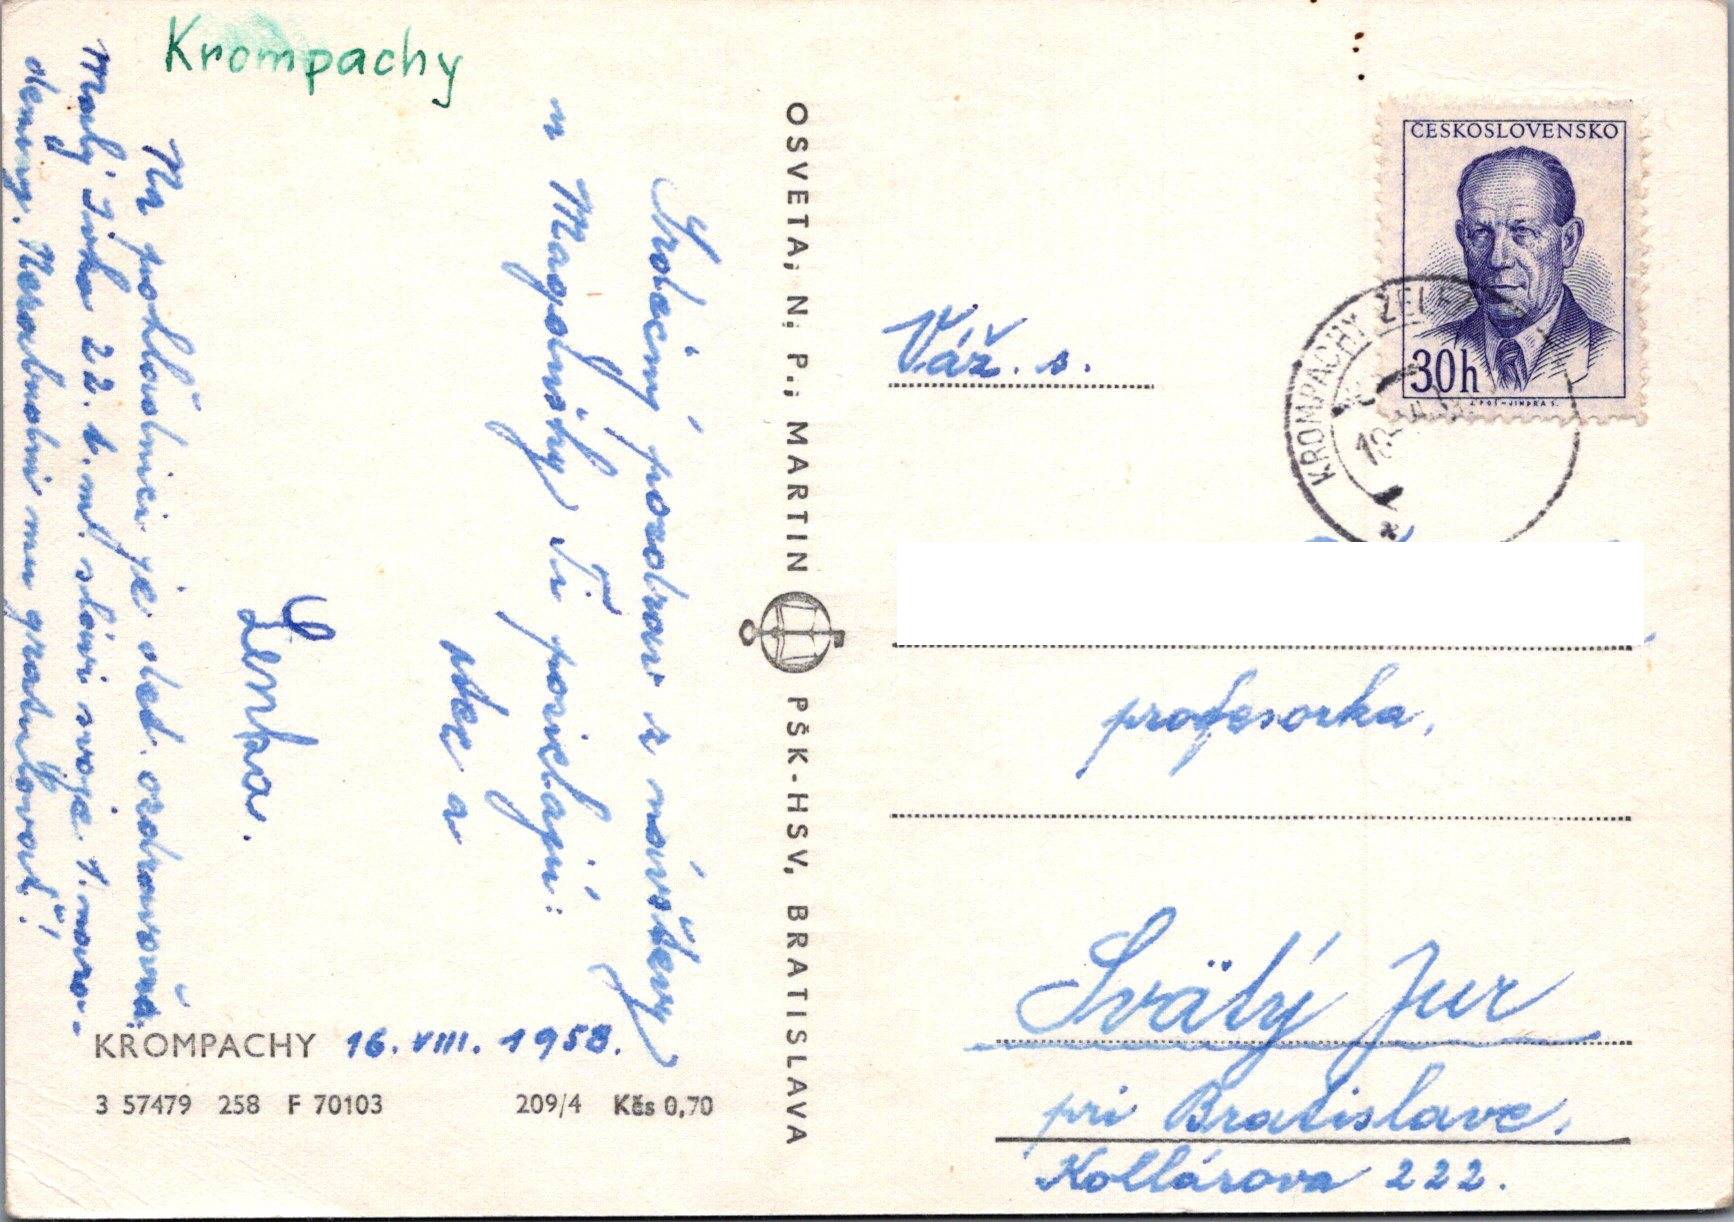 Krompachy
Srdečný pozdrav z návštevy
u Magdušky Ti posielajú:
otec a
Lenka.
Na pohľadnici je det. ozdravovňa.
Malý Joko 22. t. m. slávi svoje 1. naro-
deniny. Nezabudni mu gratulovať!
KROMPACHY 16. VIII. 1958.
3 57479 258 F 70103 209/4 Kčs 0,70
OSVETA, N. P., MARTIN PŠK-HSV, BRATISLAVA
ČESKOSLOVENSKO
30h
KROMPACHY
Váž. s.
profesorka,
Svätý Jur
pri Bratislave.
Kollárova 222.